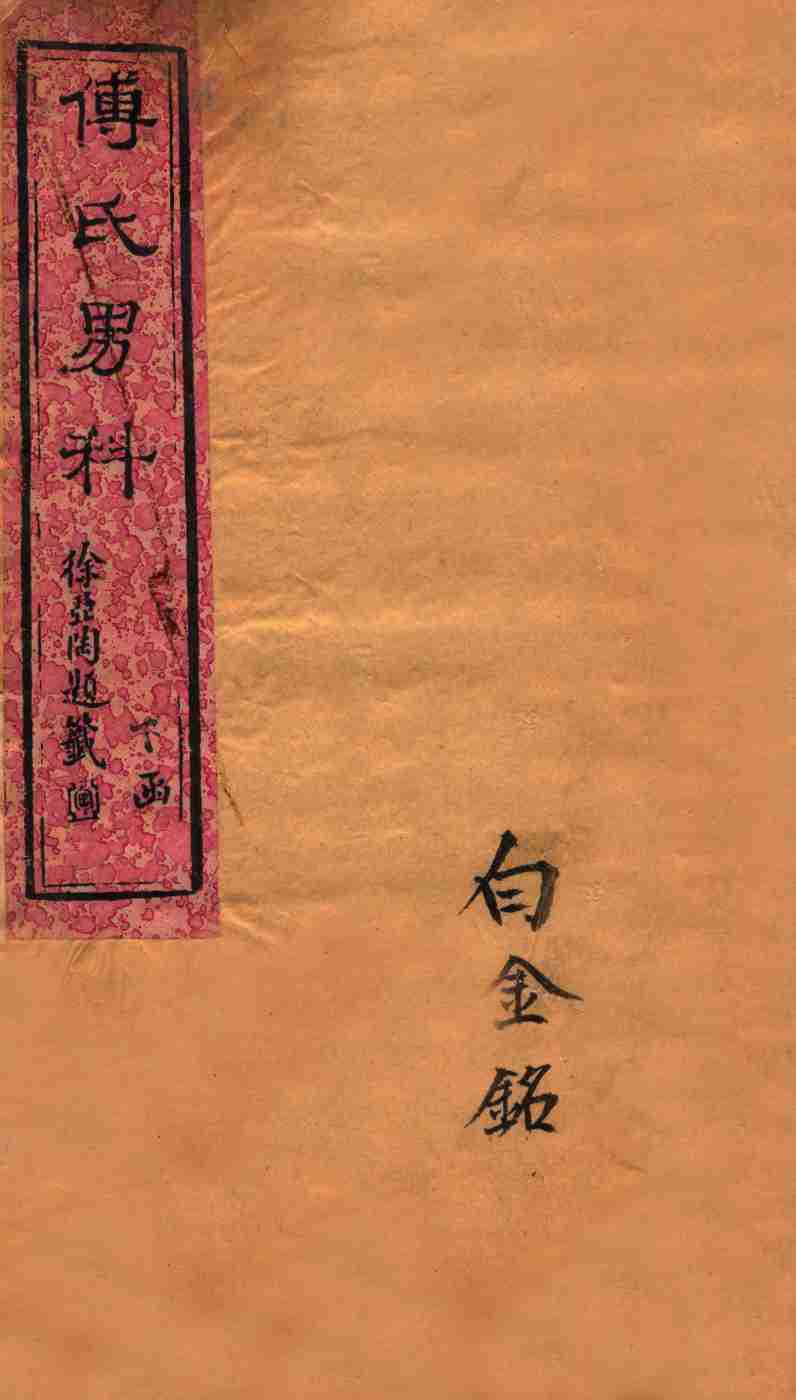 白金銘
傅氏男科
下函
徐亞陶題籤